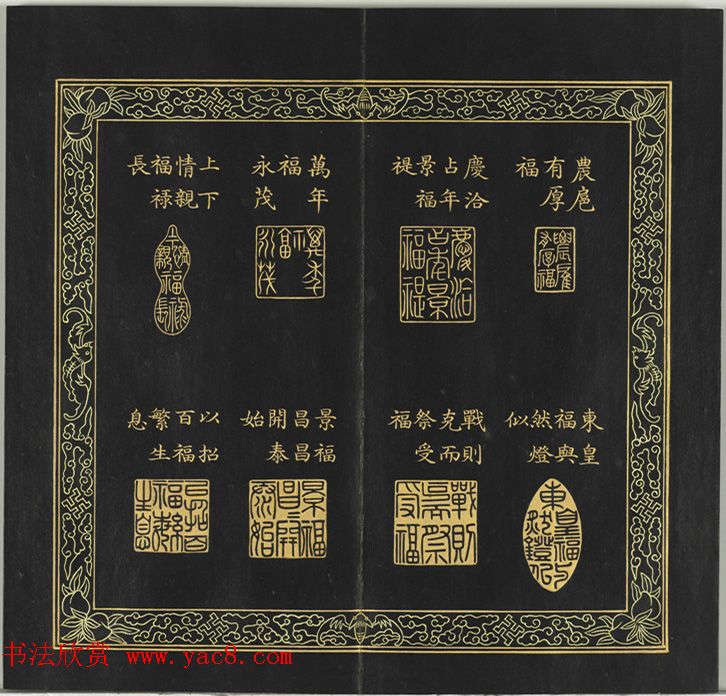 農扈有厚福
慶洽占年景福禔
萬年福永茂
上下情親福禄長
東皇福與然燈似
戰則克而祭受福
景福昌昌開泰始
以招百福繁生息
书法欣赏 www.yac8.com